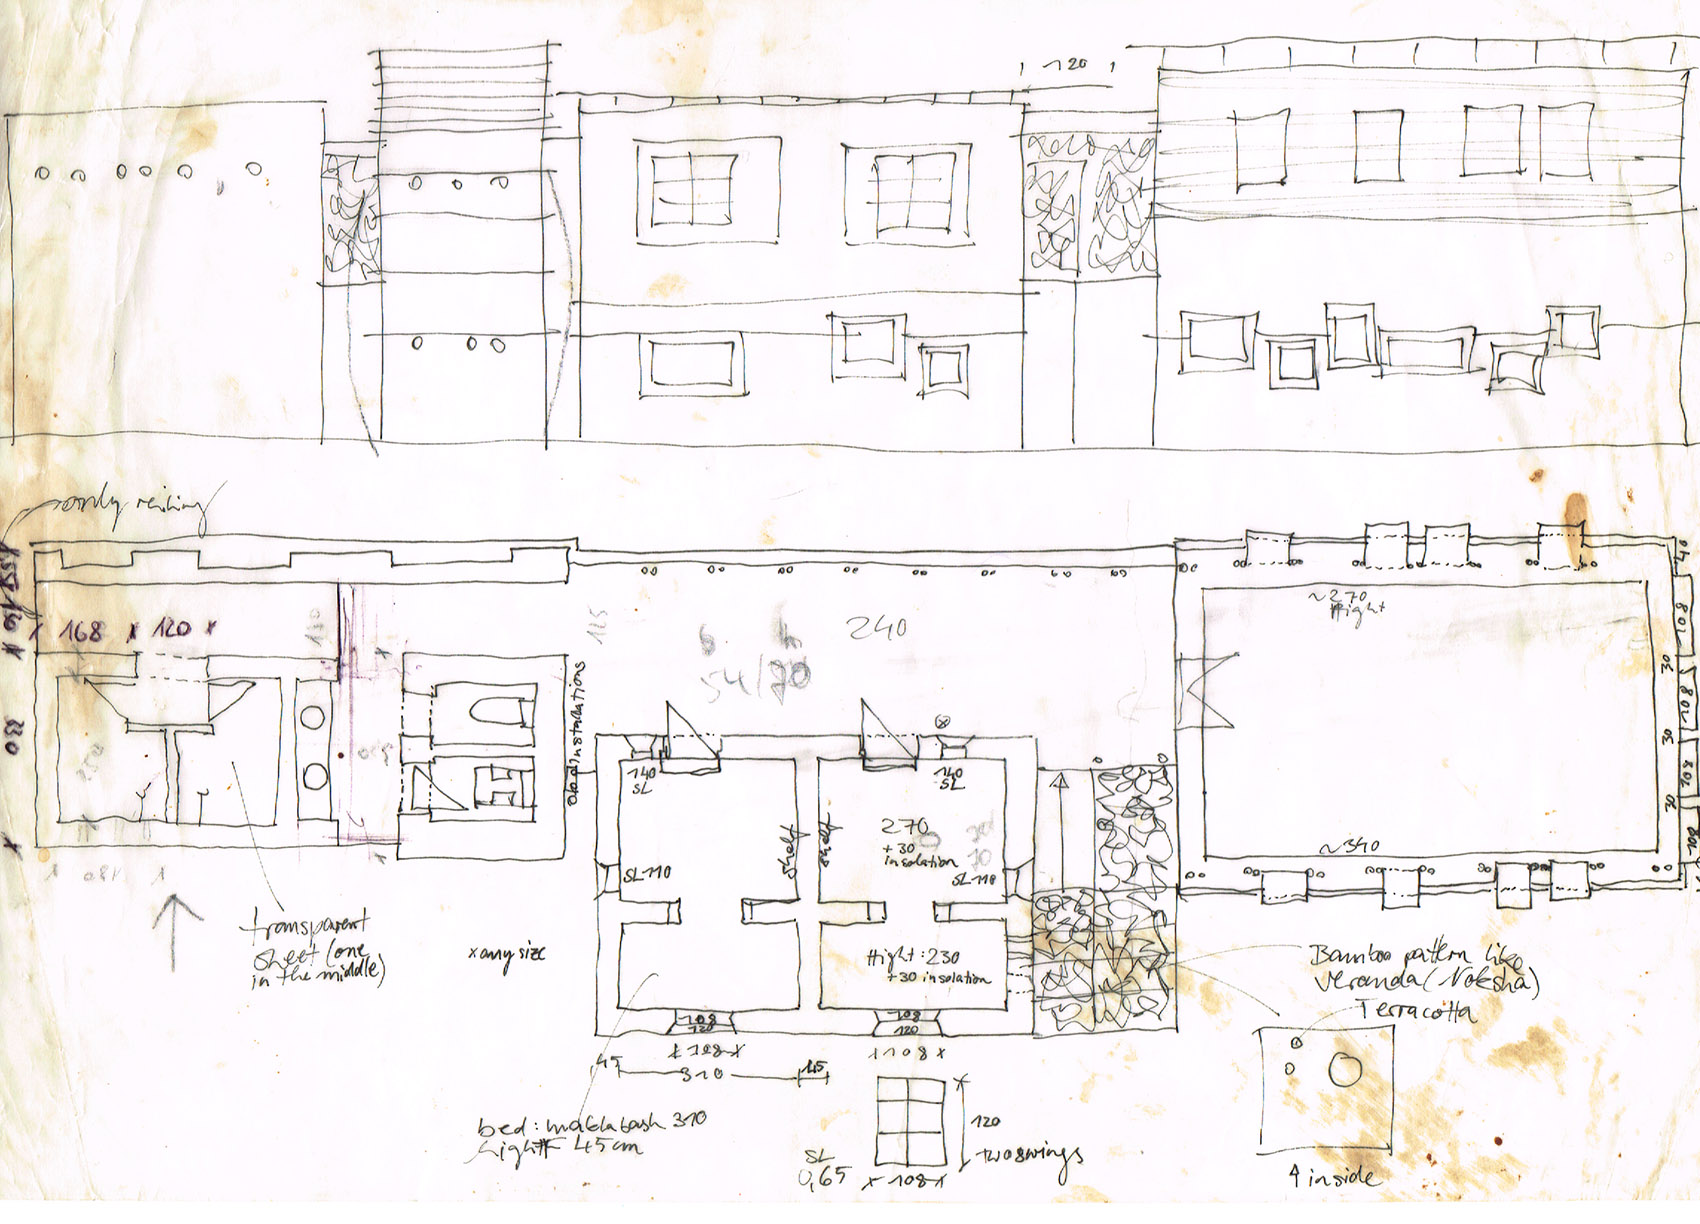 120
only reiling
168 x 120 x
130
115
240
54/70
~270
Hight
40
108
30
108
30
108
30
108
~340
330
180
Obad installations
140
SL
140
SL
shelf
shelf
270
+ 30
insolation
SL 110
SL 110
Hight: 230
+30 insolation
transparent
sheet (one
in the middle)
x any size
108
120
108
120
x 108 x
x 108 x
45
310
45
Bamboo pattern like
Veranda (Noksha)
Terracotta
bed: maklabash 310
hight 45 cm
120
two swings
SL
0,65
x 108 x
inside